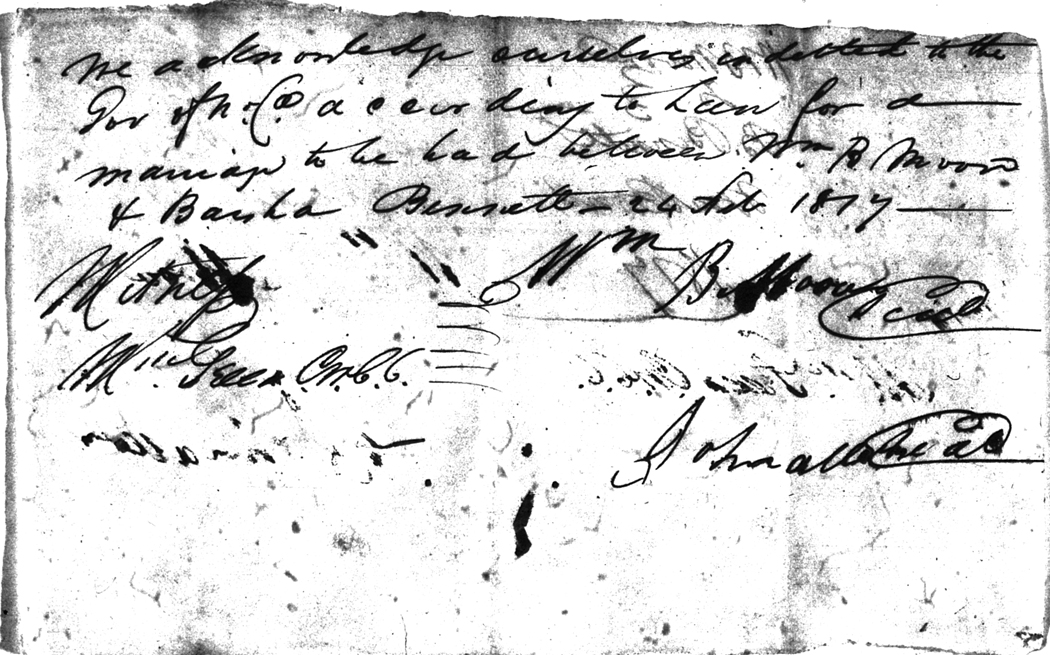 We acknowledge ourselves indebted to the
Gov of N. Ca according to Law for a
marriage to be had between Wm B Moore
& Barsha Bennett 24 Feb 1817
Wm
Witness B. Moore Seal
Wm Green C.W.C.C.
John Seal